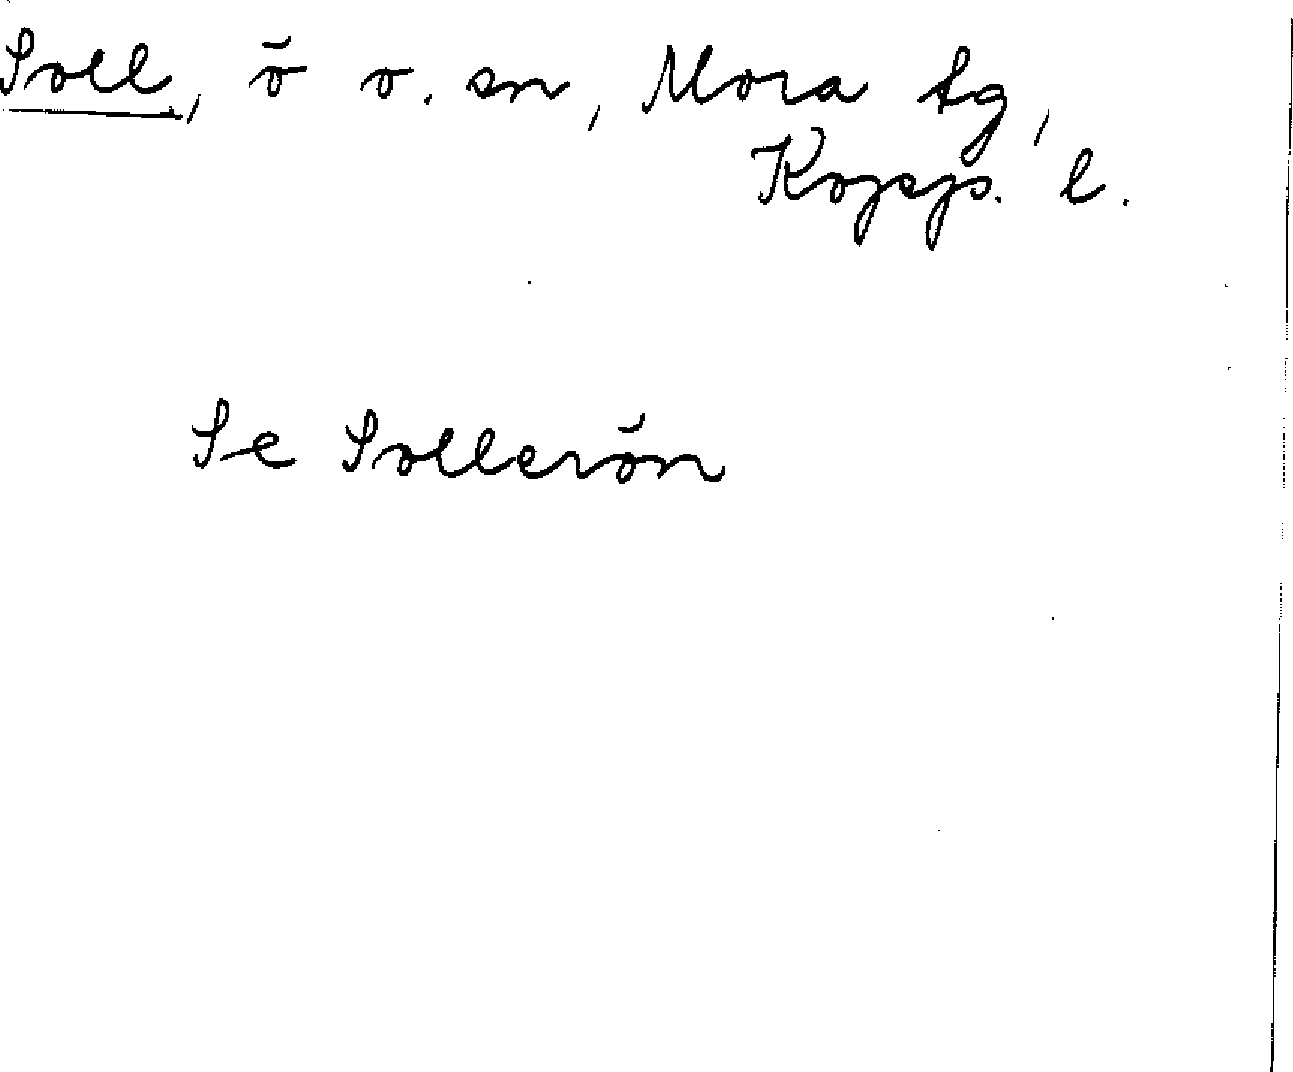 Soll, ö o. sn, Mora tg,
Kopp. l.
Se Sollerön